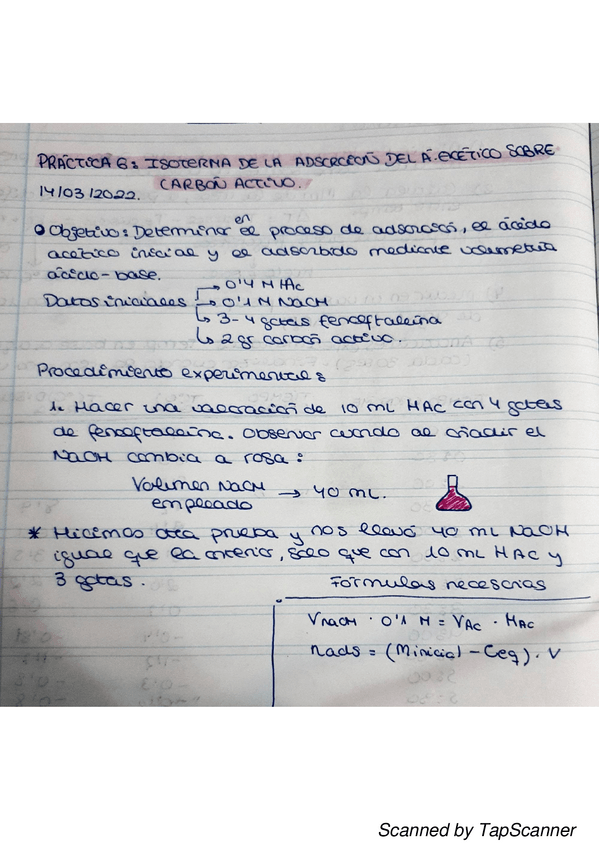 PRÁCTICA 6: ISOTERMA DE LA ADSORCIÓN DEL Á.ACÉTICO SOBRE
14/03/2022. CARBÓN ACTIVO.
• Objetivo: Determinar en el proceso de adsorción, el ácido
acético inicial y el adsorbido mediante volumetría
ácido-base.
Datos iniciales → 0'4 M HAc
→ 0'1 M NaOH
→ 3-4 gotas fenolftaleína
→ 2 gr carbón activo.
Procedimiento experimental:
1. Hacer una valoración de 10 mL HAC con 4 gotas
de fenolftaleína. Observar cuando al añadir el
NaOH cambia a rosa:
Volumen NaOH empleado → 40 mL.
* Hicimos otra prueba y nos llevó 40 mL NaOH
igual que la anterior, solo que con 10 mL HAC y
3 gotas.
Fórmulas necesarias
VNaOH · 0'1 M = VAc · MAC
nads = (Minicial - Ceq) · V
Scanned by TapScanner